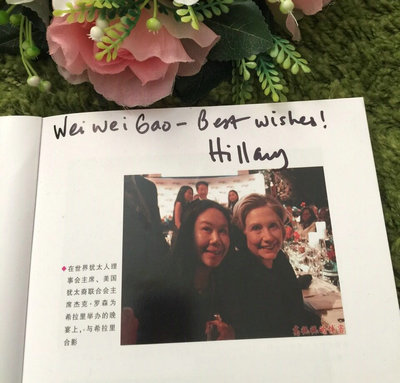 Wei Wei Gao - Best wishes!
Hillary
◆在世界犹太人理
事会主席、美国
犹太裔联合会主
席杰克·罗森为
希拉里举办的晚
宴上，与希拉里
合影